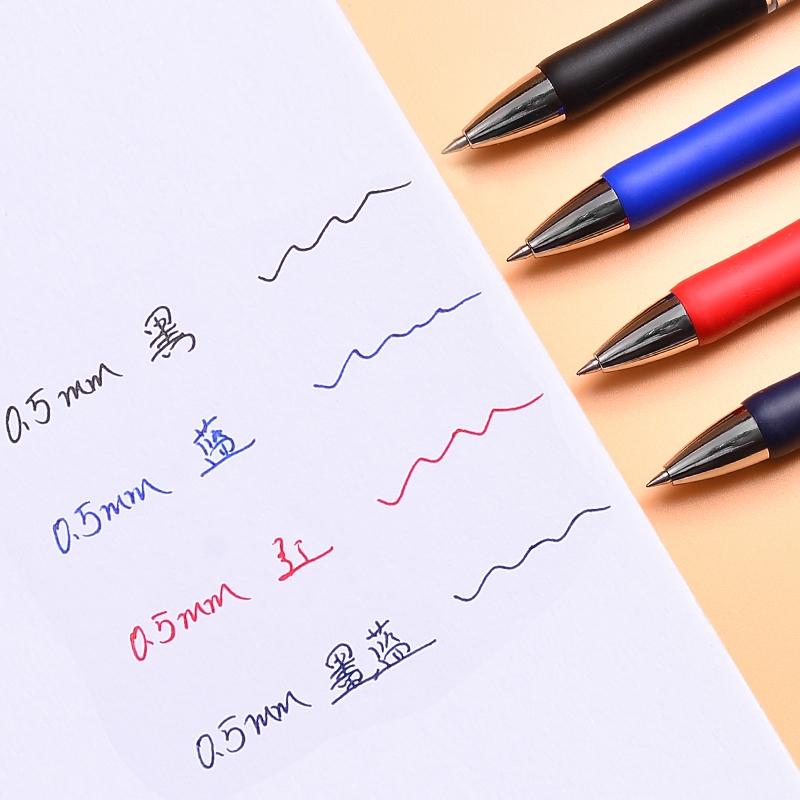 0.5mm 黑
0.5mm 蓝
0.5mm 红
0.5mm 墨蓝